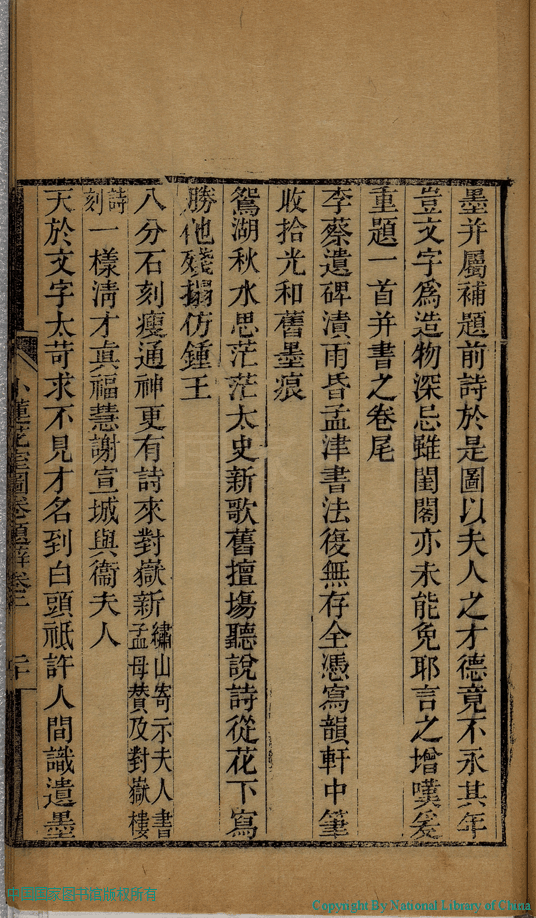 墨并屬補題前詩於是圖以夫人之才德竟不永其年
豈文字爲造物深忌雖閨閣亦未能免耶言之增嘆爰
重題一首并書之卷尾
李蔡遺碑漬雨昏孟津書法復無存全憑寫韻軒中筆
收拾光和舊墨痕
鴛湖秋水思茫茫太史新歌舊擅塲聽說詩從花下寫
勝他殘搨仿鍾王
八分石刻瘦通神更有詩來對嶽新繡山寄示夫人書孟母賛及對嶽樓
詩刻一樣淸才眞福慧謝宣城與衞夫人
天於文字太苛求不見才名到白頭祗許人間識遺墨
小蓮花室圖卷題辭卷二
二十
中国国家图书馆版权所有
Copyright By National Library of China